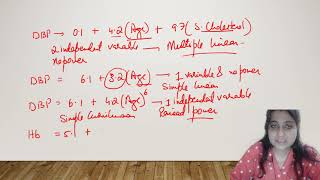 DBP → 0.1 + 4.2 (Age) + 9.7 (S. Cholestrol)
2 independent variable → Multiple linear
no power
DBP = 6.1 + 3.2 (Age) → 1 variable & no power
Simple linear
DBP = 6.1 + 4.2 (Age)⁶ → 1 independent variable
Simple Curvilinear Raised power
Hb = 5.1 +